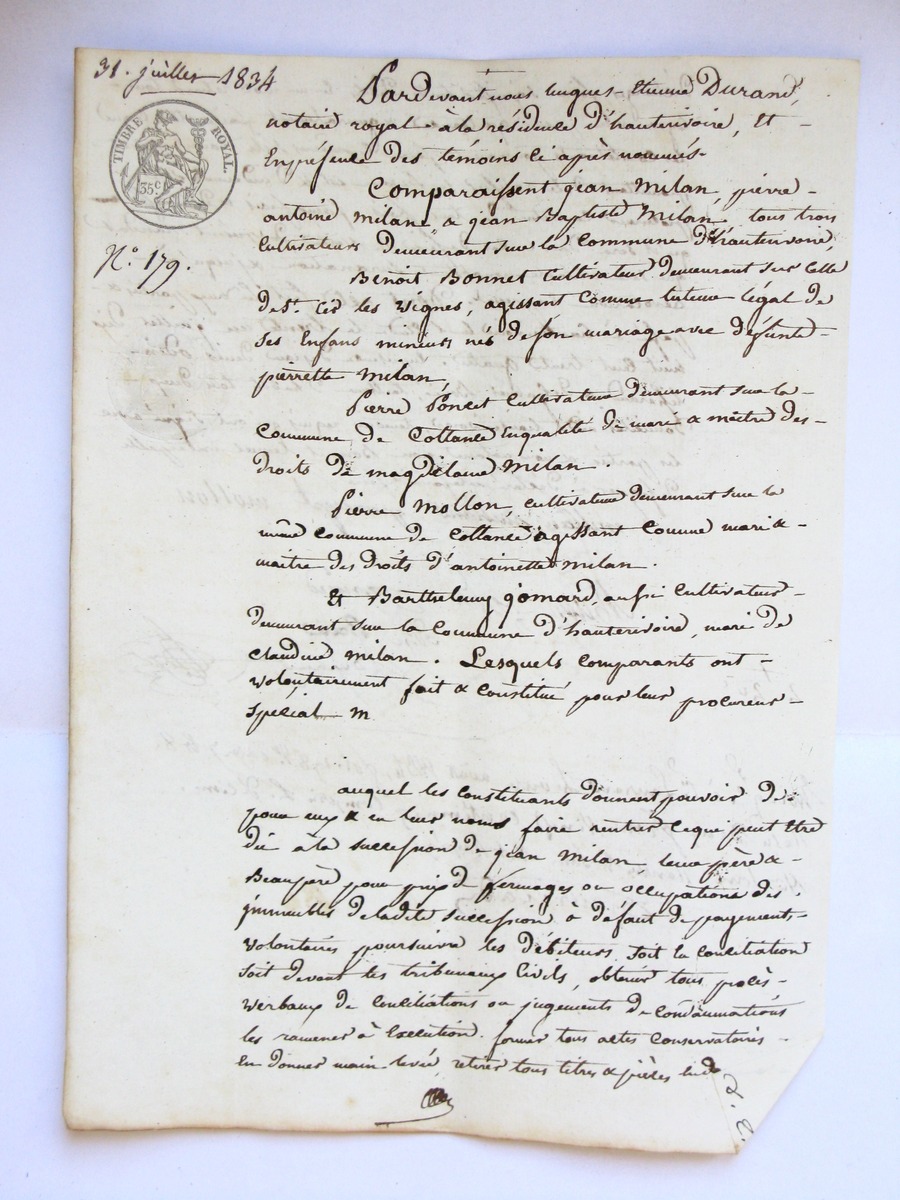 31. juillet 1834
TIMBRE ROYAL.
35c.
N.o 179.
Pardevant nous hugues-Etienne Durand,
notaire royal à la résidence d'hauterivoire, Et
En présence des témoins ci après nommés.
Comparaissent jean Milan, pierre
antoine Milan & jean Baptiste Milan, tous trois
cultivateurs demeurant sur la commune d'hauterivoire,
Benoit Bonnet Cultivateur demeurant sur celle
de St. Cir les Vignes, agissant comme tuteur légal de
ses Enfans mineurs nés de son mariage avec défunte
pierrette Milan,
Pierre Poncet Cultivateur demeurant sur la
Commune de Cottance En qualité de mari & maître des
droits de magdelaine Milan.
Pierre Mollon, cultivateur demeurant sur la
même Commune de Cottance agissant Comme mari &
maitre des droits d'antoinette Milan.
Et Barthelemy jomard, aussi Cultivateur
demeurant sur la Commune d'hauterivoire, mari de
Claudine Milan. Lesquels comparants ont
volontairement fait & constitué pour leur procureur
spécial m
auquel les constituants donnent pouvoir de
pour eux & en leur noms faire rentrer ce que peut être
dû à la succession de jean Milan leur père &
Beaupère pour prix de fermages ou occupations des
immeubles de ladite succession à défaut de payements
volontaires poursuivre les débiteurs soit la conciliation
soit devant les tribunaux Civils, obtenir tous procès-
verbaux de Conciliations ou jugements de condamnations
les ramener à Execution. former tous actes conservatoires
En donner main levée, retirer tous titres & pièces